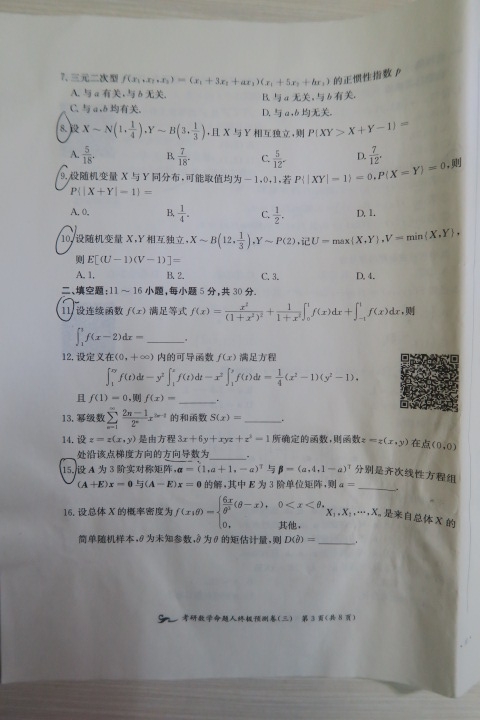 7. 三元二次型 f(x₁,x₂,x₃) = (x₁+3x₂+ax₃)(x₁+5x₂+bx₃) 的正惯性指数 p
A. 与 a 有关,与 b 无关. B. 与 a 无关,与 b 有关.
C. 与 a,b 均有关. D. 与 a,b 均无关.
8. 设 X ~ N(1, 1/4), Y ~ B(3, 1/3), 且 X 与 Y 相互独立,则 P{XY > X+Y-1} =
A. 5/18. B. 7/18. C. 5/12. D. 7/12.
9. 设随机变量 X 与 Y 同分布,可能取值均为 -1,0,1,若 P{|XY|=1} = 0, P{X=Y} = 0,则
P{|X+Y|=1} =
A. 0. B. 1/4. C. 1/2. D. 1.
10. 设随机变量 X,Y 相互独立, X ~ B(12, 1/3), Y ~ P(2), 记 U = max{X,Y}, V = min{X,Y},
则 E[(U-1)(V-1)] =
A. 1. B. 2. C. 3. D. 4.
二、填空题:11~16 小题,每小题 5 分,共 30 分.
11. 设连续函数 f(x) 满足等式 f(x) = x²/(1+x²)² + 1/(1+x²) ∫₀¹ f(x)dx + ∫₋₁¹ f(x)dx, 则
f(x-2)dx = ______.
12. 设定义在(0,+∞) 内的可导函数 f(x) 满足方程
∫₁^{xy} f(t)dt - y²∫₁^x f(t)dt - x²∫₁^y f(t)dt = 1/4 (x²-1)(y²-1),
且 f(1) = 0, 则 f(x) = ______.
13. 幂级数 ∑_{n=1}^∞ (2n-1)/2ⁿ x^{2n-2} 的和函数 S(x) = ______.
14. 设 z = z(x,y) 是由方程 3x+6y+xyz+z³ = 1 所确定的函数,则函数 z = z(x,y) 在点(0,0)
处沿该点梯度方向的方向导数为______.
15. 设 A 为 3 阶实对称矩阵, α = (1,a+1,-a)ᵀ 与 β = (a,4,1-a)ᵀ 分别是齐次线性方程组
(A+E)x = 0 与 (A-E)x = 0 的解,其中 E 为 3 阶单位矩阵,则 a = ______.
16. 设总体 X 的概率密度为 f(x;θ) = { 6x/θ³ (θ-x), 0<x<θ, X₁,X₂,⋯,Xₙ 是来自总体 X 的
0, 其他,
简单随机样本,θ 为未知参数,θ̂ 为 θ 的矩估计量,则 D(θ̂) = ______.
考研数学命题人终极预测卷(三) 第 3 页(共 8 页)